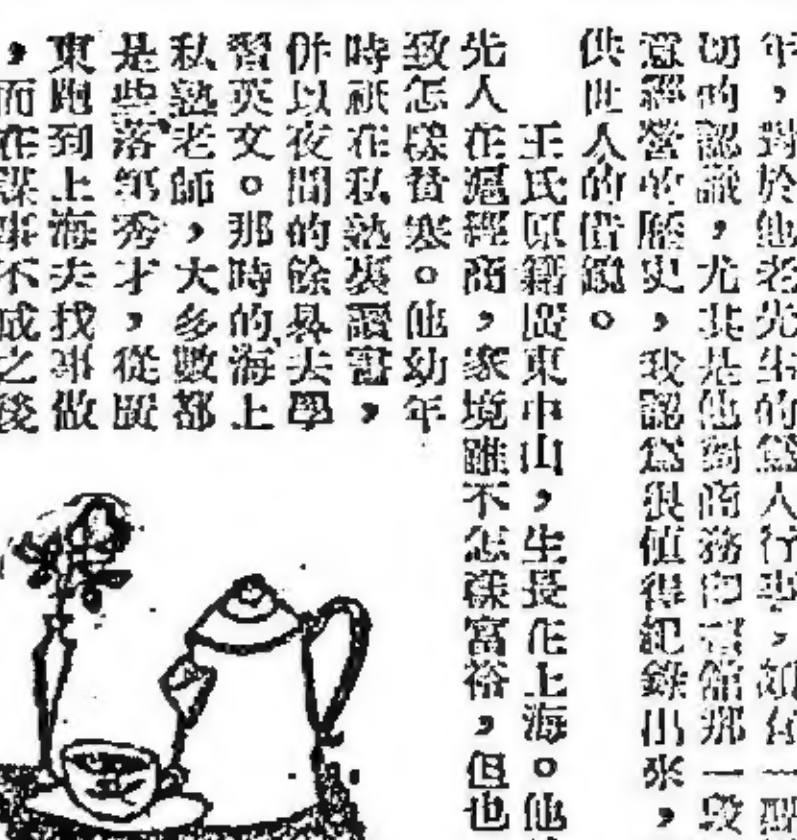 年，對於他老先生的爲人行事，頗有一
切的認識，尤其是他對商務印書館那一段
意經營的歷史，我認爲很值得紀錄出來，
供世人的借鏡。
王氏原籍廣東中山，生長在上海。他
先人在滬經商，家境雖不怎樣富裕，但也
致怎樣貧寒。他幼年
時祇在私塾裏讀書，
併以夜間的餘晷去學
習英文。那時的海上
私塾老師，大多數都
是些落第秀才，從廣
東跑到上海去找事做
，而在謀事不成之後